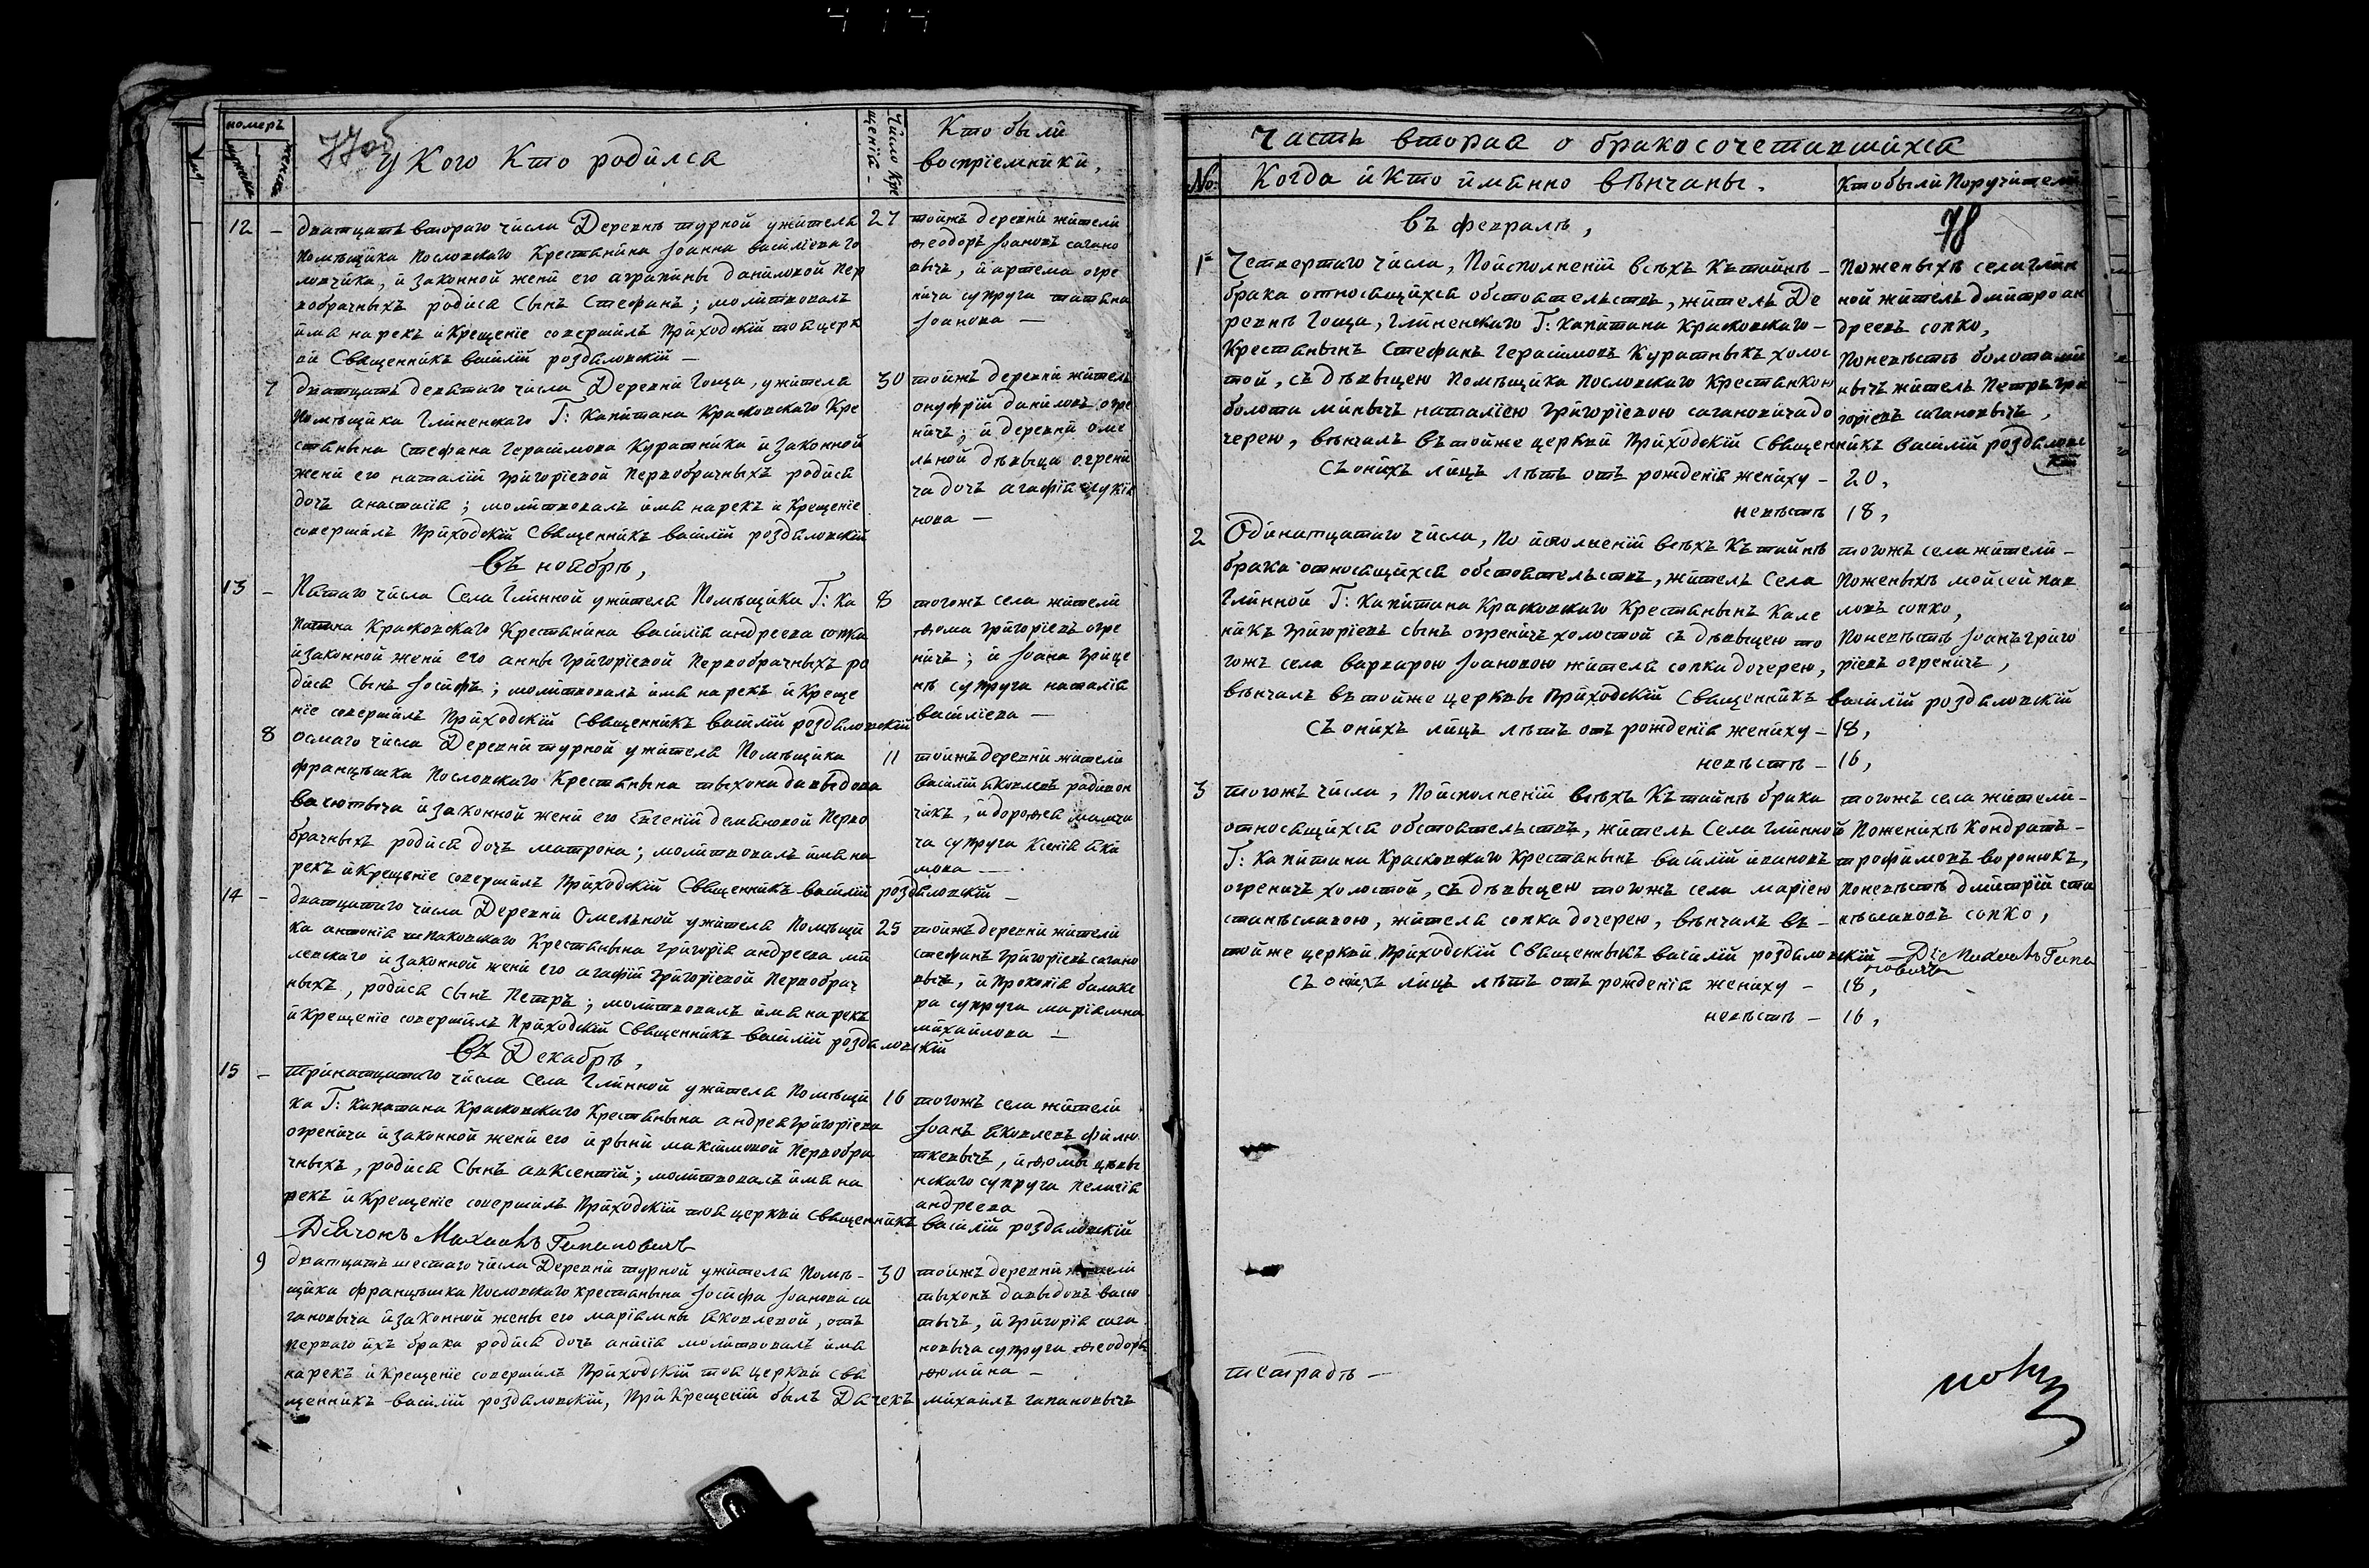 номеръ
77об
у Кого Кто родился
Число Кре
щенія
Кто были
воспріемники,
12 – дватцать втораго числа Деревнѣ турной ужителя 27
помѣщика Пословского Крестьянина Іоанна василіева го
ловчика, и законной жени его агрипины даниловой пер
вобрачныхъ родися Сынъ Стефанъ; молитвовалъ
имя нарекъ и Крещеніе совершилъ Приходскій тоя церк
ви Священникъ василій роздаловскій –
тойжъ деревни жители
Ѳеодоръ Іоановъ сагано
вичъ, и артема огре
нича супруга татіана
Іоанова –
7 дватцать девятаго числа Деревни Гоща, ужителя 30
Помѣщика Глиненскаго Г: Капитана Красковскаго Кре
стьянына Стефана Герасимова Куратника и законной
жени его наталій григоріевой Первобрачныхъ родися
дочъ анастасія; молитвовалъ имя нарекъ и Крещеніе
совершилъ Приходскій Священникъ василій роздаловскій
тойжъ деревни житель
онуфрій даниловъ огре
ничъ; и деревни оме
льной дѣвыца огрени
ча дочъ агафія лукія
нова –
въ ноябрѣ,
13 – Пятаго числа Села Глинной ужителя Помѣщика Г: Ка 8
питана Красковскаго Крестьянина василія андреева сопка
и законной жени его анны григоріевой Первобрачныхъ ро
дися Сынъ Іосифъ; молитвовалъ имя нарекъ и Креще
ніе совершилъ Приходскій Священникъ василій роздаловскій
тогожъ села жители
Ѳома григоріевъ огре
ничъ; и Іоана грице
нѣ супруга наталія
василіева –
8 осмаго числа Деревни турной ужителя Помѣщика 11
францѣшка Пословского Крестьянына тыхона давыдова
васютыча и законной жени его Евгеній демяновой Перво
брачныхъ родися дочъ матрона; молитвовалъ имя на
рекъ и Крещеніе совершилъ Приходскій Священникъ василій роздаловскій –
тойжъ деревни жители
василій яковлевъ родивон
чикъ, и дороѳея мамчи
ча супруга Ксенія яки
мова –
14 – дватцатаго числа Деревни Омельной ужителя Помѣщи 25
ка антонія шпаковскаго Крестьянына григорія андреева ми
левскаго и законной жени его агафій григоріевой Первобрач
ныхъ, родися Сынъ Петръ; молитвовалъ имя нарекъ
и Крещеніе совершилъ Приходскій Священникъ василій роздаловскій
тойжъ деревни жители
стефанъ григоріевъ сагано
вычъ, и Прокопія балаке
ра супруга маріямна
михайлова –
въ Декабрѣ,
15 – тринатцатаго числа Села Глинной ужителя Помѣщи 16
ка Г: Капитана Красковскаго Крестьянына андрея григоріева
огренича и законной жени его ирыни максимовой Первобра
чныхъ, родися Сынъ авксентій; молитвовалъ имя на
рекъ и Крещеніе совершилъ Приходскій тоя церкви Священникъ василій роздаловскій
тогожъ села жители
Іоанъ яковлевъ филю
ткевычъ, и Ѳомы цѣвы
нскаго супруга пелагія
андреева
Дячокъ Михаилъ Гапановичъ
9 двацать шестаго числа Деревни турной ужителя Помѣ- 30
щика францѣшка Пословского крестьянына Іосифа Іоанова са
гановыча и законной жены его маріямны яковлевой, отъ
перваго ихъ брака родися дочъ анисія молитвовалъ имя
нарекъ и Крещеніе совершилъ Приходскій тоя церкви Свя
щенникъ василій роздаловскій, При Крещеній былъ Дячекъ михаилъ гапановычъ
тойжъ деревни жители
тыхонъ давыдовъ васю
тычъ, и григорія сага
новыча супруга Ѳеодора
Ѳомина –
Часть вторая о бракосочетавшихся
№ Когда и Кто имянно вѣнчаны.
Кто были Поручители
78
въ февралѣ,
1 Четвертаго числа, По исполненій всѣхъ Къ тайнѣ –
брака относящихся обстоятельствъ, житель Де
ревнѣ Гоща, Глиненскаго Г: Капитана Красковскаго –
Крестьянынъ Стефанъ Герасимовъ Куратныкъ холос
той, съ дѣвыцею Помѣщика Пословского Крестьянкою
наталіею григоріевою сагановича до
черею, вѣнчалъ въ тойже церкви Приходскій Священникъ василій роздаловс
кій
Поженыхѣ села глин
ной житель дмитро ан
дреевъ сопко,
Поневѣстѣ
житель Петръ гри
горіевъ сагановычъ,
Съ онихъ лицъ лѣтъ отъ рожденія жениху – 20,
невѣстѣ 18,
2 Одинатцатаго числа, По исполненій всѣхъ Къ тайнѣ
брака относящихся обстоятельствъ, житель Села
Глинной Г: Капитана Красковскаго Крестьянынъ Кале
никъ григоріевъ сынъ огреничъ холостой съ дѣвыцею то
гожъ села варварою Іоановою жителя сопка дочерею,
вѣнчалъ въ тойже церквы Приходскій Священникъ василій роздаловскій
тогожъ села жители –
Поженыхѣ мойсей пав
ловъ сопко,
Поневѣстѣ Іоанъ григо
ріевъ огреничъ,
Съ онихъ лицъ лѣтъ отъ рожденія жениху – 18,
невѣстѣ – 16,
3 тогожъ числа, По исполненій всѣхъ Къ тайнѣ брака
относящихся обстоятельствъ, житель Села глинной
Г: Капитана Красковскаго Крестьянынъ василій ивановъ
огреничъ холостой, съ дѣвыцею тогожъ села маріею
станѣславою, жителя сопка дочерею, вѣнчалъ въ –
тойже церкви, Приходскій Священныкъ василій роздаловскій –
тогожъ села жители –
Поженихѣ Кондратъ –
трофимовъ воронюкъ,
Поневѣстѣ дмитрій ста
нѣславовъ сопко,
Съ онихъ лицъ лѣтъ отъ рожденія жениху – 18,
невѣстѣ – 16,
тетрадь –